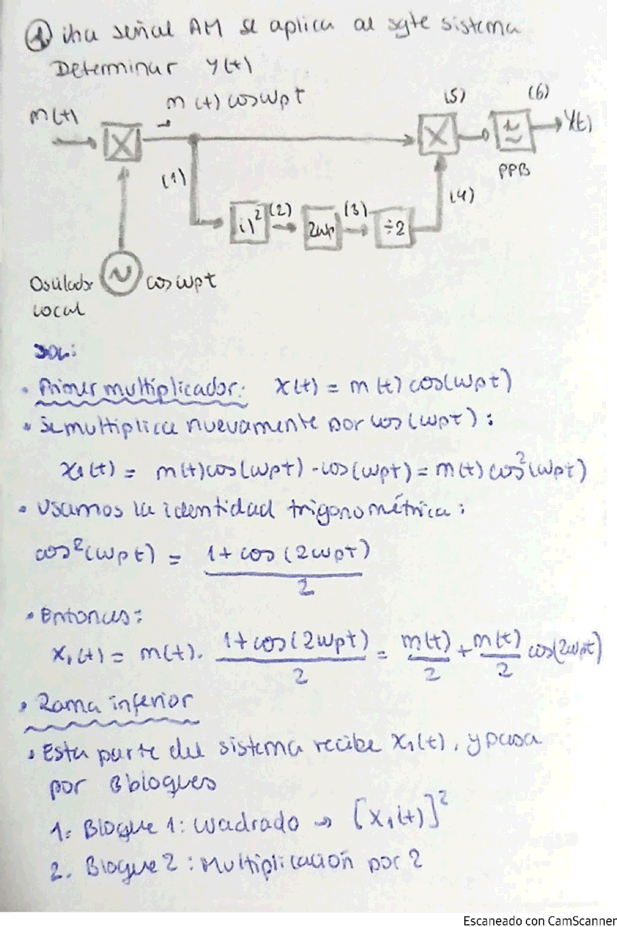 ① Una señal AM se aplica al sgte sistema
Determinar y(t)
m(t) cosωpt
m(t)
(1)
(5)
(6)
y(t)
PPB
( )²
(2)
2ωp
(3)
÷2
(4)
Oscilador
Local
cosωpt
Sol:
• Primer multiplicador: x(t) = m(t) cos(ωpt)
• Se multiplica nuevamente por cos(ωpt):
x₁(t) = m(t)cos(ωpt)·cos(ωpt) = m(t) cos²(ωpt)
• Usamos la identidad trigonométrica:
cos²(ωpt) = 1+cos(2ωpt) / 2
• Entonces:
x₁(t) = m(t). 1+cos(2ωpt) / 2 = m(t)/2 + m(t)/2 cos(2ωpt)
• Rama inferior
• Esta parte del sistema recibe x₁(t), y pasa
por 3 bloques
1. Bloque 1: cuadrado → [x₁(t)]²
2. Bloque 2: Multiplicación por 2
Escaneado con CamScanner